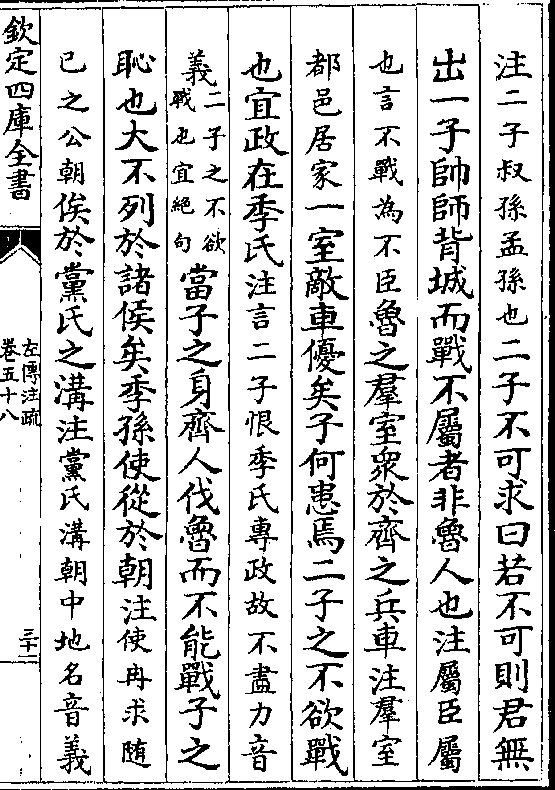 注二子叔孫孟孫也二子不可求曰若不可則君無
出一子帥師背城而戰不屬者非魯人也注屬臣屬
也言不戰為不臣魯之羣室衆於齊之兵車注羣室
都邑居家一室敵車優矣子何患焉二子之不欲戰
也宜政在季氏注言二子恨季氏專政故不盡力音
義二子之不欲戰也宜絕句當子之身齊人伐魯而不能戰子之
恥也大不列於諸侯矣季孫使從於朝注使冉求隨
已之公朝俟於黨氏之溝注黨氏溝朝中地名音義
欽定四庫全書
左傳注疏
卷五十八
三十二